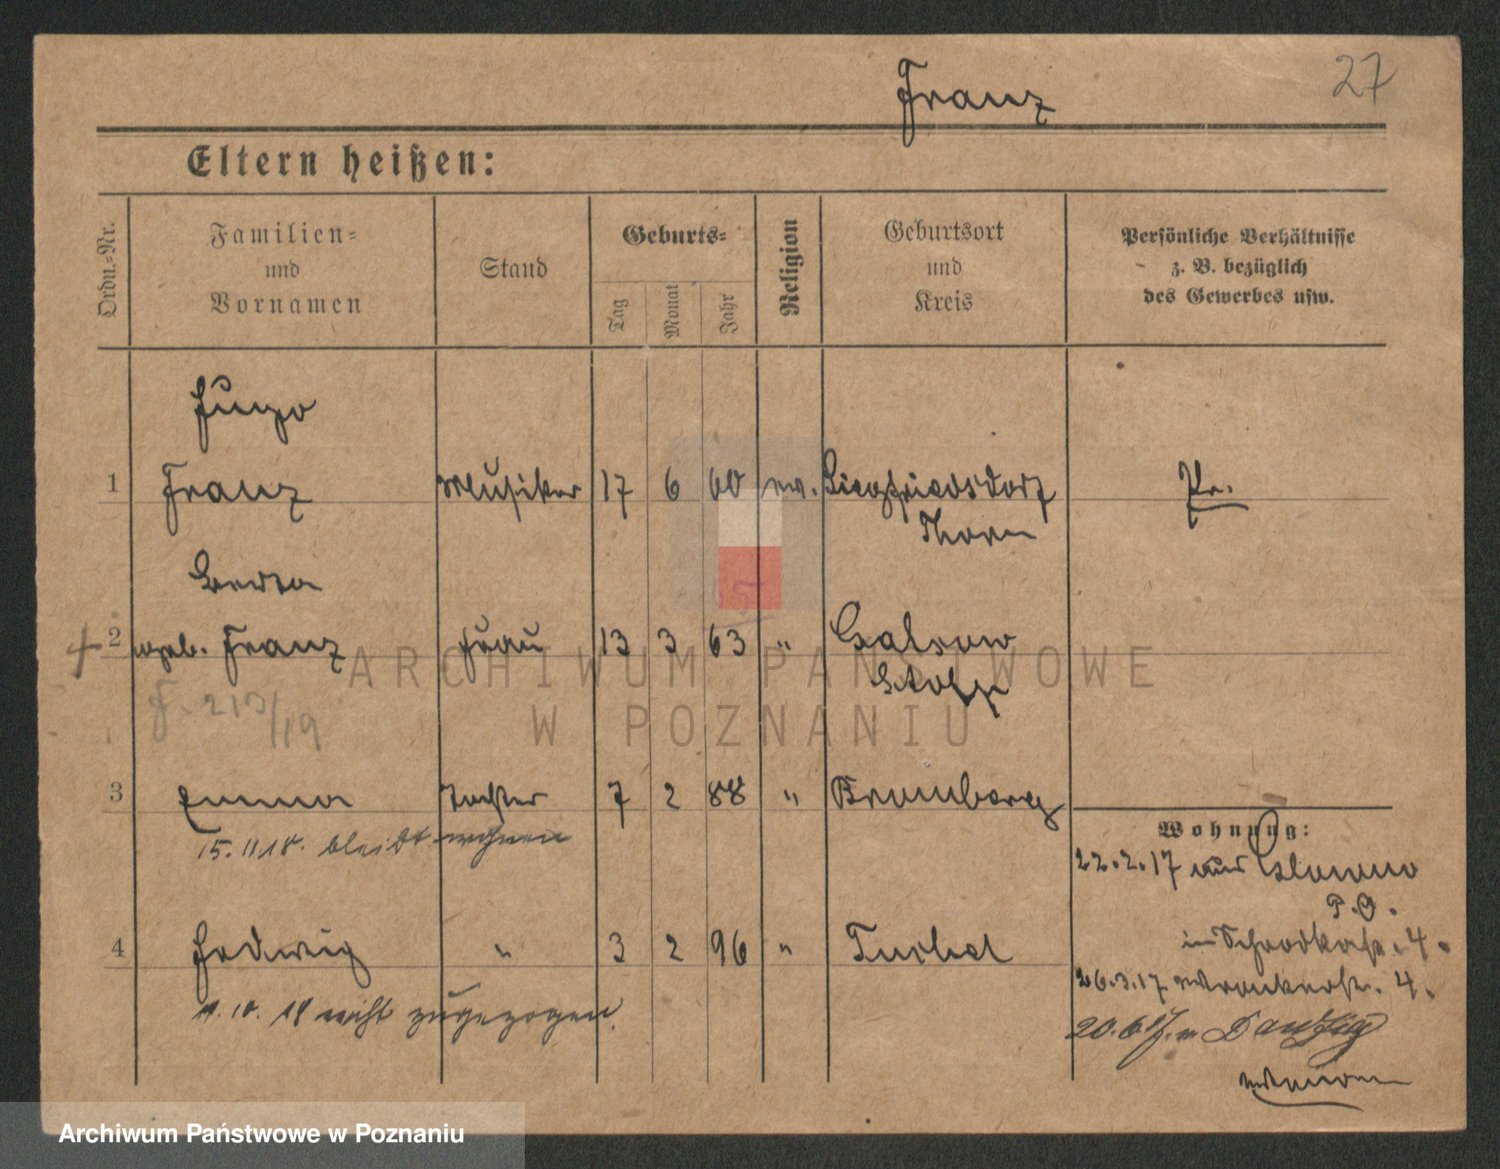 Franz
27
Eltern heißen:
Ordn.-Nr.
Familien-
und
Vornamen
Stand
Geburts-
Tag
Monat
Jahr
Religion
Geburtsort
und
Kreis
Persönliche Verhältnisse
z. B. bezüglich
des Gewerbes usw.
Hugo
1 Franz Musiker 17 6 60 ev. Siegfriedsdorf Pr.
Thorn
Berta
2 geb. Franz Frau 13 3 63 "
Stolp
F. 213/19
3 Emma Tochter 7 2 88 " Bromberg
15. 11 18. bleibt wohnen
Wohnung:
22.2.17 aus
P.O.
4 Hedwig " 3 2 96 " Tuchel
4.
26.3.17 Wronkerstr. 4.
nicht zugezogen.
20.6.17. n Danzig
ARCHIWUM PAŃSTWOWE
W POZNANIU
Archiwum Państwowe w Poznaniu